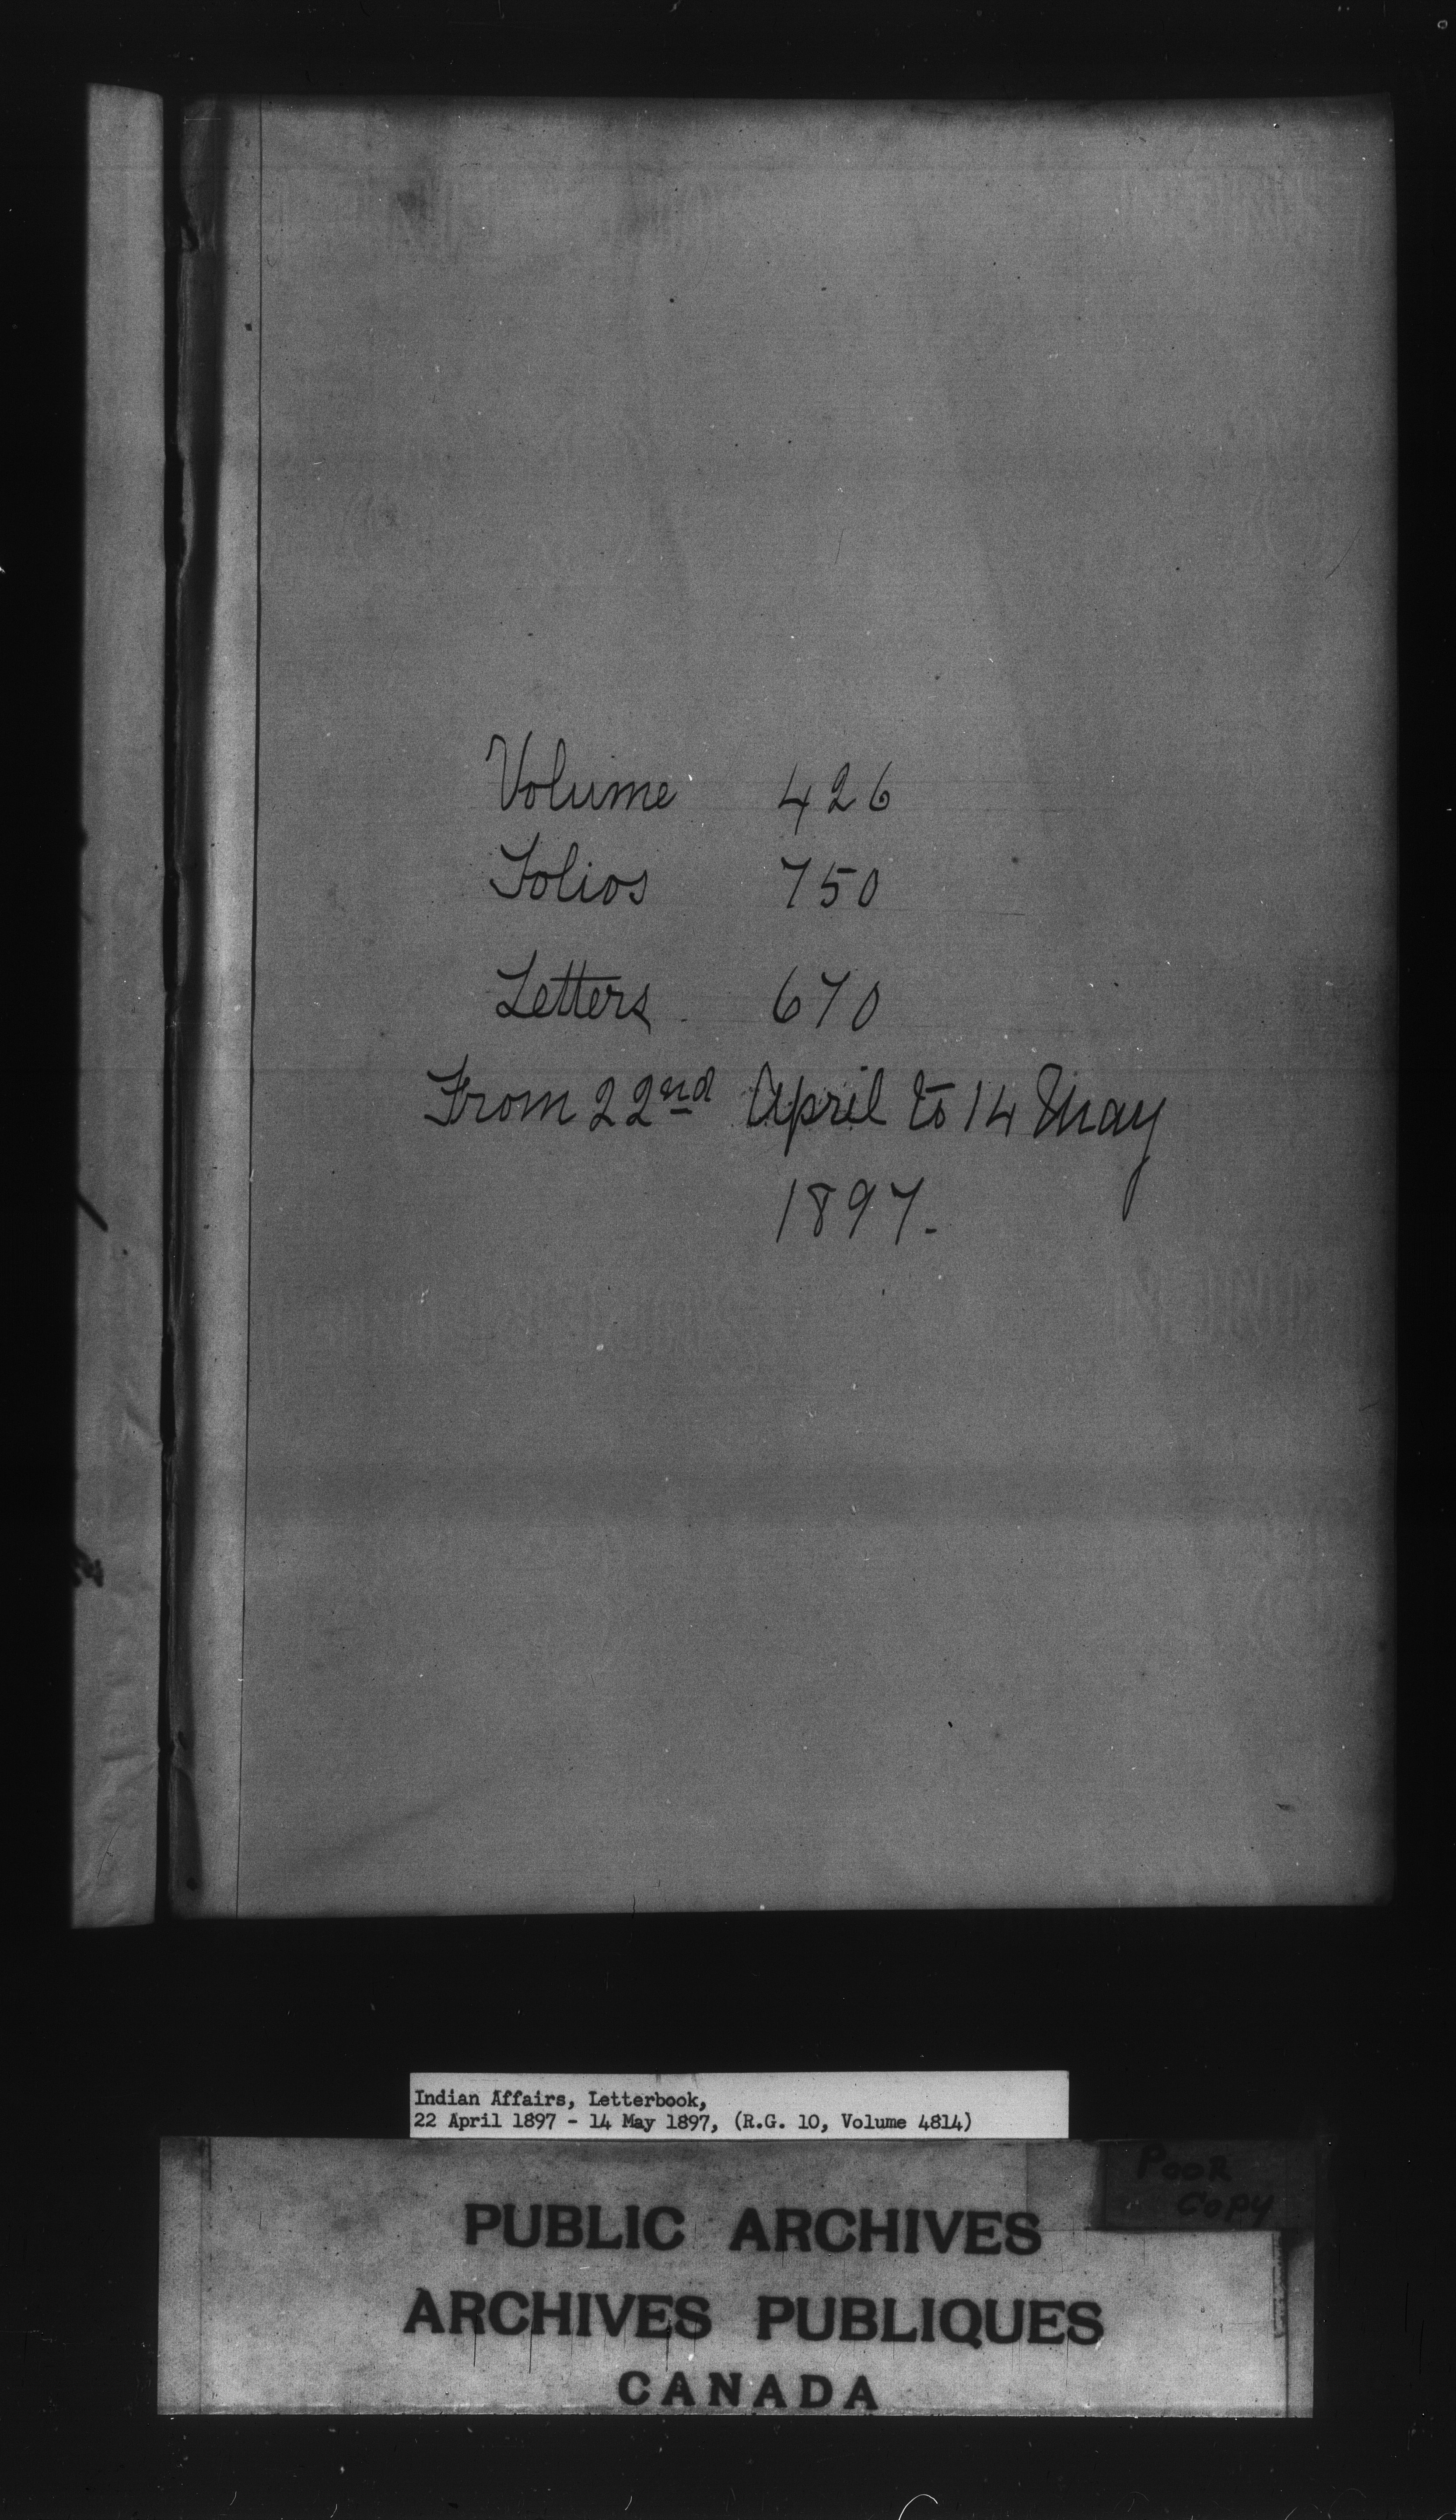 Volume 426
Folios 750
Letters 670
From 22nd April to 14 May
1897.
Indian Affairs, Letterbook,
22 April 1897 - 14 May 1897, (R.G. 10, Volume 4814)
POOR
COPY
PUBLIC ARCHIVES
ARCHIVES PUBLIQUES
CANADA